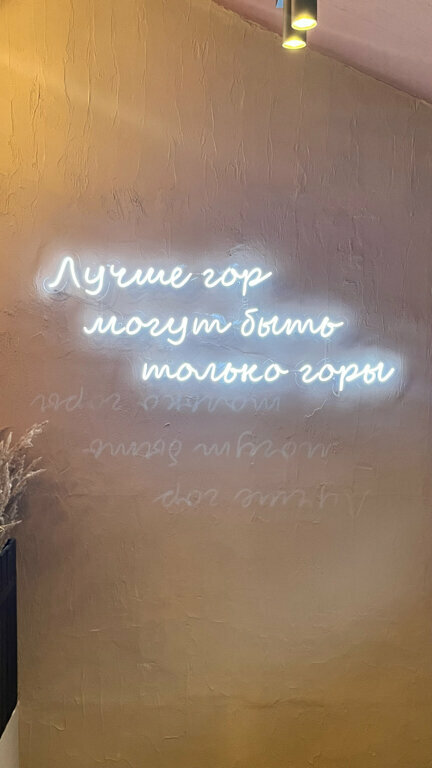 Лучше гор
могут быть
только горы